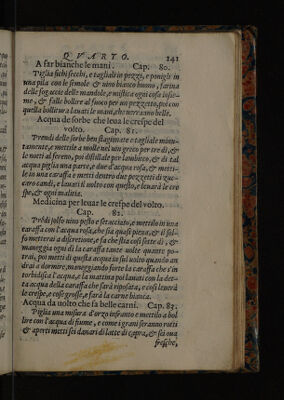 QVARTO. 241
A far bianche le mani. Cap. 80.
Piglia fichi secchi, e tagliali in pezzi, e ponigli in
una pila con le semole & uino bianco buono, farina
delle fogaccie delle mandole, e mistica ogni cosa insie-
me, & falle bollire al fuoco per un pezzetto, poi con
quella bollitura lauati le mani, che uerranno belle.
Acqua de sorbe che leua le crespe del
volto. Cap. 81.
Prendi delle sorbe ben stagionate e tagliale minu-
tamente, e mettile a molle nel uin greco per tre dì, &
le notti al sereno, poi distillale per lambicco, & di tal
acqua piglia una parte, e due d'acqua rosa, & metti-
le in una caraffa e metti dentro due pezzetti di zuc-
caro candi, e lauati il uolto con questo, e leuarà le cre
spe, & ogni malitia.
Medicina per leuar le crespe del volto.
Cap. 82.
Prēdi solfo uino pesto e setacciato, e mettilo in una
caraffa con l'acqua rosa, che sia quasi piena, & il sol-
fo metterai a discretione, e fa che stia così sette dì, &
maneggia ogni dì la caraffa tante uolte quante po-
trai, poi metti di questa acqua in sul uolto quando an
drai a dormire, maneggiando forte la caraffa che s'in
torbidisca l'acqua, e la mattina poi lauati con la det-
ta acqua della caraffa che sarà riposata, e così leuerà
le crespe, e cose grosse, e farà la carne bianca.
Acqua da uolto che fa belle carni. Cap. 83.
Piglia una misura d'orzo infranto e mettilo a bol
lire con l'acqua di fiume, e come i grani seranno rotti
& aperti metti sei danari di latte di capra, & sei oua
fresche,